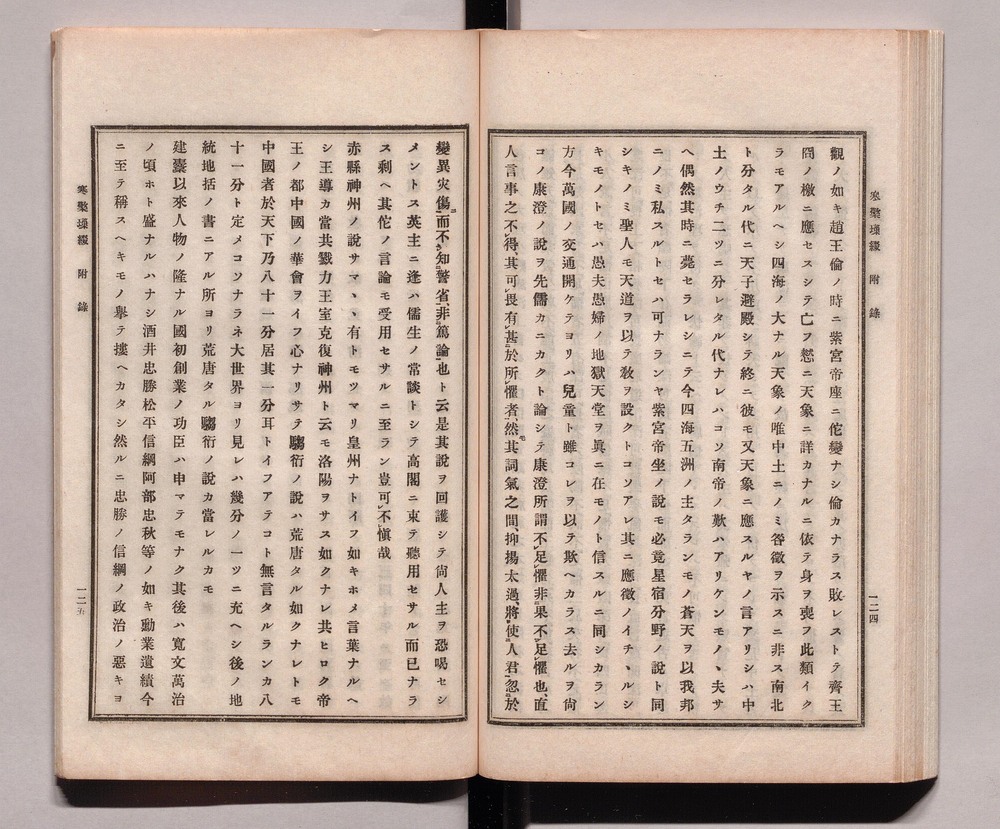 寒檠璅綴　附錄
一二四
觀ノ如キ趙王倫ノ時ニ紫宮帝座ニ佗變ナシ倫カナラス敗レストテ齊王
冏ノ檄ニ應セスシテ亡フ愁ニ天象ニ詳カナルニ依テ身ヲ喪フ此類イク
ラモアルヘシ四海ノ大ナル天象ノ唯中土ニノミ咎徵ヲ示スニ非ス南北
ト分タル代ニ天子避殿シテ終ニ彼モ又天象ニ應スルヤノ言アリシハ中
土ノウチ二ツニ分レタル代ナレハコソ南帝ノ歎ハアリケンモノヽ夫サ
ヘ偶然其時ニ薨セラレシニテ今四海五洲ノ主タランモノ蒼天ヲ以我邦
ニノミ私スルトセハ可ナランヤ紫宮帝坐ノ說モ必竟星宿分野ノ說ト同
シキノミ聖人モ天道ヲ以テ敎ヲ設クトコソアレ其ニ應徵ノイチヽルシ
キモノトセハ愚夫愚婦ノ地獄天堂ヲ眞ニ在モノト信スルニ同シカラン
方今萬國ノ交通開ケテヨリハ兒童ト雖コレヲ以テ欺ヘカラス去ルヲ尙
コノ康澄ノ說ヲ先儒カニカクト論シテ康澄所謂不足懼非果不足懼也直
人言事之不得其可畏有甚於所懼者然其詞氣之間抑揚太過將使人君忽於
變異灾傷而不知警省非篤論也ト云是其說ヲ回護シテ尙人主ヲ恐喝セシ
メントス英主ニ逢ハ儒生ノ常談トシテ高閣ニ束テ聽用セサル而已ナラ
ス剩ヘ其佗ノ言論モ受用セサルニ至ラン豈可不愼哉
赤縣神州ノ說サマヽヽ有トモツマリ皇州ナトイフ如キホメ言葉ナルヘ
シ王導カ當共戮力王室克復神州ト云モ洛陽ヲサス如クナレ共ヒロク帝
王ノ都中國ノ華會ヲイフ心ナリサテ騶衍ノ說ハ荒唐タル如クナレトモ
中國者於天下乃八十一分居其一分耳トイフアテコト無言タルランカ八
十一分ト定メコソナラネ大世界ヨリ見レハ幾分ノ一ツニ充ヘシ後ノ地
統地括ノ書ニアル所ヨリ荒唐タル騶衍ノ說カ當レルカモ
建櫜以來人物ノ隆ナル國初創業ノ功臣ハ申マテモナク其後ハ寬文萬治
ノ頃ホト盛ナルハナシ酒井忠勝松平信綱阿部忠秋等ノ如キ勳業遺績今
ニ至テ稱スヘキモノ擧テ摟ヘカタシ然ルニ忠勝ノ信綱ノ政治ノ惡キヨ
寒檠璅綴　附錄
一二五